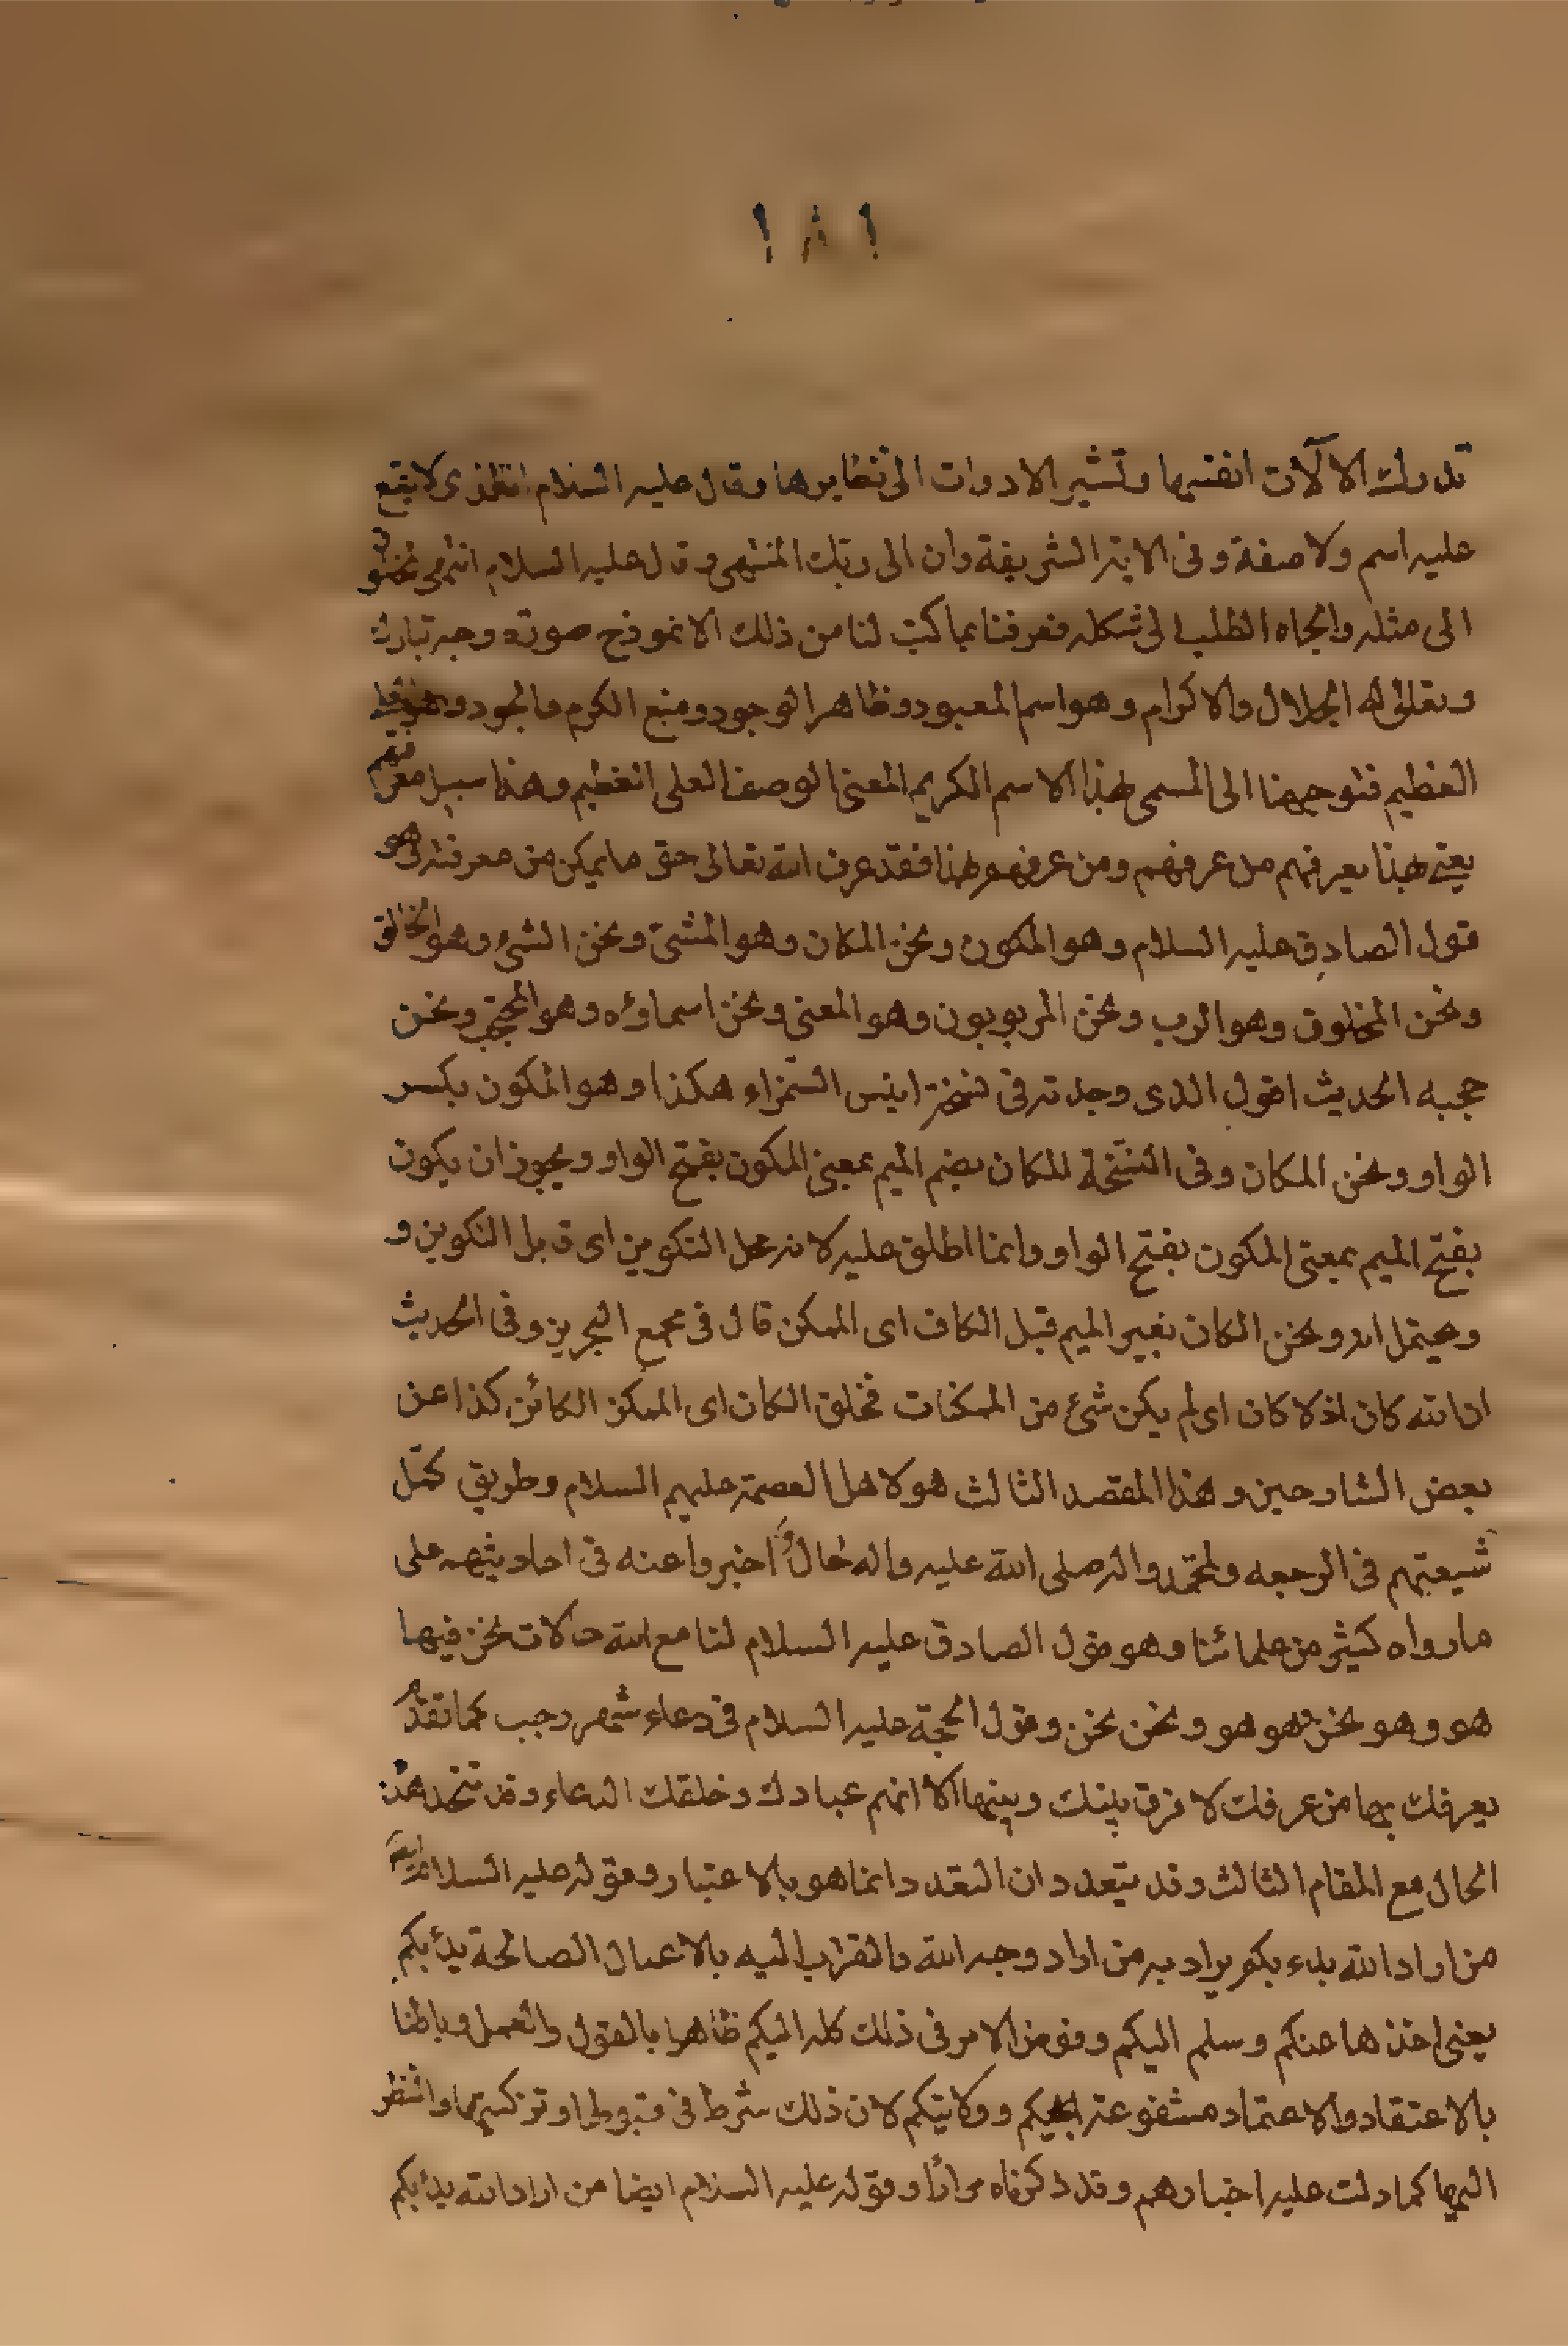 ١٨١
تدرك الالآت انفسها وتشير الادوات الى نظايرها وقال عليه السلام الذى لا يقع
عليه اسم ولا صفة وفى الاية الشريفة وان الى ربك المنتهى وقال عليه السلام انتهى المخلوق
الى مثله والجاه الطلب الى شكله فعرفنا بما كتب لنا من ذلك الانموذج صورته وجه تبارك
وتعالى له الجلال والاكرام وهو اسم المعبود وظاهر الوجود ومنبع الكرم والجود
العظيم فتوجهنا الى المسمى بهذا الاسم الكريم المعنى الوصف العلى العظيم وهذا سبيل معرفتهم
يعنى بهذا يعرفهم من عرفهم ومن عرفهم بهذا فقد عرف الله تعالى حق ما يمكن من معرفته
قول الصادق عليه السلام وهو المكون ونحن المكان وهو المشئ ونحن الشئ وهو الخالق
ونحن المخلوق وهو الرب ونحن المربوبون وهو المعنى ونحن اسماؤه وهو المحتجب ونحن
حجبه الحديث اقول الذى وجدته فى نسخة انيس السمراء هكذا وهو المكون بكسر
الواو ونحن المكان وفى النسخة للمكان بضم الميم بمعنى المكون بفتح الواو ويجوز ان يكون
بفتح الميم بمعنى المكون بفتح الواو وانما اطلق عليه لانه محل التكوين اى قابل التكوين و
ويحتمل انه ونحن الكان بغير الميم قبل الكاف اى الممكن قال فى مجمع البحرين وفى الحديث
ان الله كان اذ لا كان اى لم يكن شئ من الممكنات فخلق الكان اى الممكن الكائن كذا عن
بعض الشارحين وهذا المقصد الثالث هو لاهل العصمة عليهم السلام وطريق كمّل
شيعتهم فى الرجعه ولمحمد واله صلى الله عليه واله حال اخبروا عنه فى احاديثهم على
ما رواه كثير من علمائنا وهو قول الصادق عليه السلام لنا مع الله حالات نحن فيها
هو وهو نحن وهو هو ونحن نحن وقول الحجة عليه السلام فى دعاء شهر رجب كما تقدم
يعرفك بها من عرفك لا فرق بينك وبينها الا انهم عبادك وخلقك الدعاء وقد تتحد هذه
الحال مع المقام الثالث وقد يتعدد ان التعدد انما هو بالاعتبار وقوله عليه السلام
من اراد الله بدء بكم يراد به من اراد وجه الله والتقرب اليه بالاعمال الصالحة بدء بكم
يعنى اخذها عنكم وسلم اليكم وفوض الامر فى ذلك كله اليكم ظاهرا بالقول والعمل وباطنا
بالاعتقاد والاعتماد مشفوعة وولايتكم لان ذلك شرط فى قبولها وتزكيتها والنظر
اليها كما دلت عليه اخبارهم وقد ذكرناه مرارًا وقوله عليه السلام ايضا من اراد الله بدء بكم